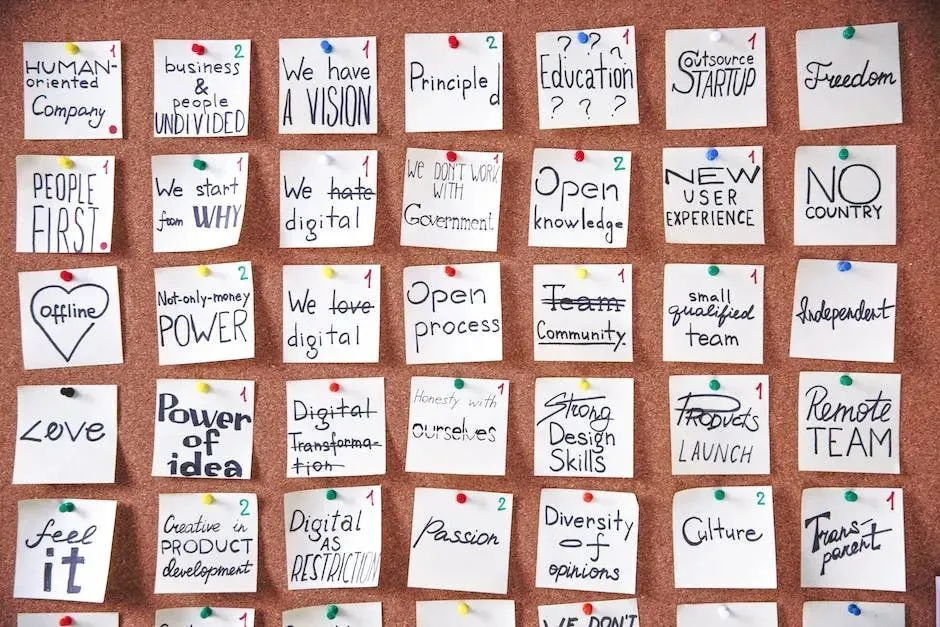 HUMAN-
oriented
Company
1
business
&
people
UNDIVIDED
2
We have
A VISION
1
Principled
2
? ? ?
Education
? ? ?
1
Outsource
STARTUP
1
Freedom
PEOPLE
FIRST.
1
We start
from WHY
1
We hate
digital
1
WE DON'T WORK
WITH
Government
1
Open
knowledge
2
NEW
USER
EXPERIENCE
1
NO
COUNTRY
offline
Not-only-money
POWER
2
We love
digital
1
Open
process
Team
Community
1
small
qualified
team
1
Independent
Love
Power
of
idea
1
Digital
Transforma-
tion
Honesty with
ourselves
1
Strong
Design
Skills
Products
LAUNCH
1
Remote
TEAM
feel
it
Creative in
PRODUCT
development
2
Digital
AS
RESTRICTION
1
Passion
2
Diversity
of
opinions
Culture
2
Trans-
parent
1
WE DON'T